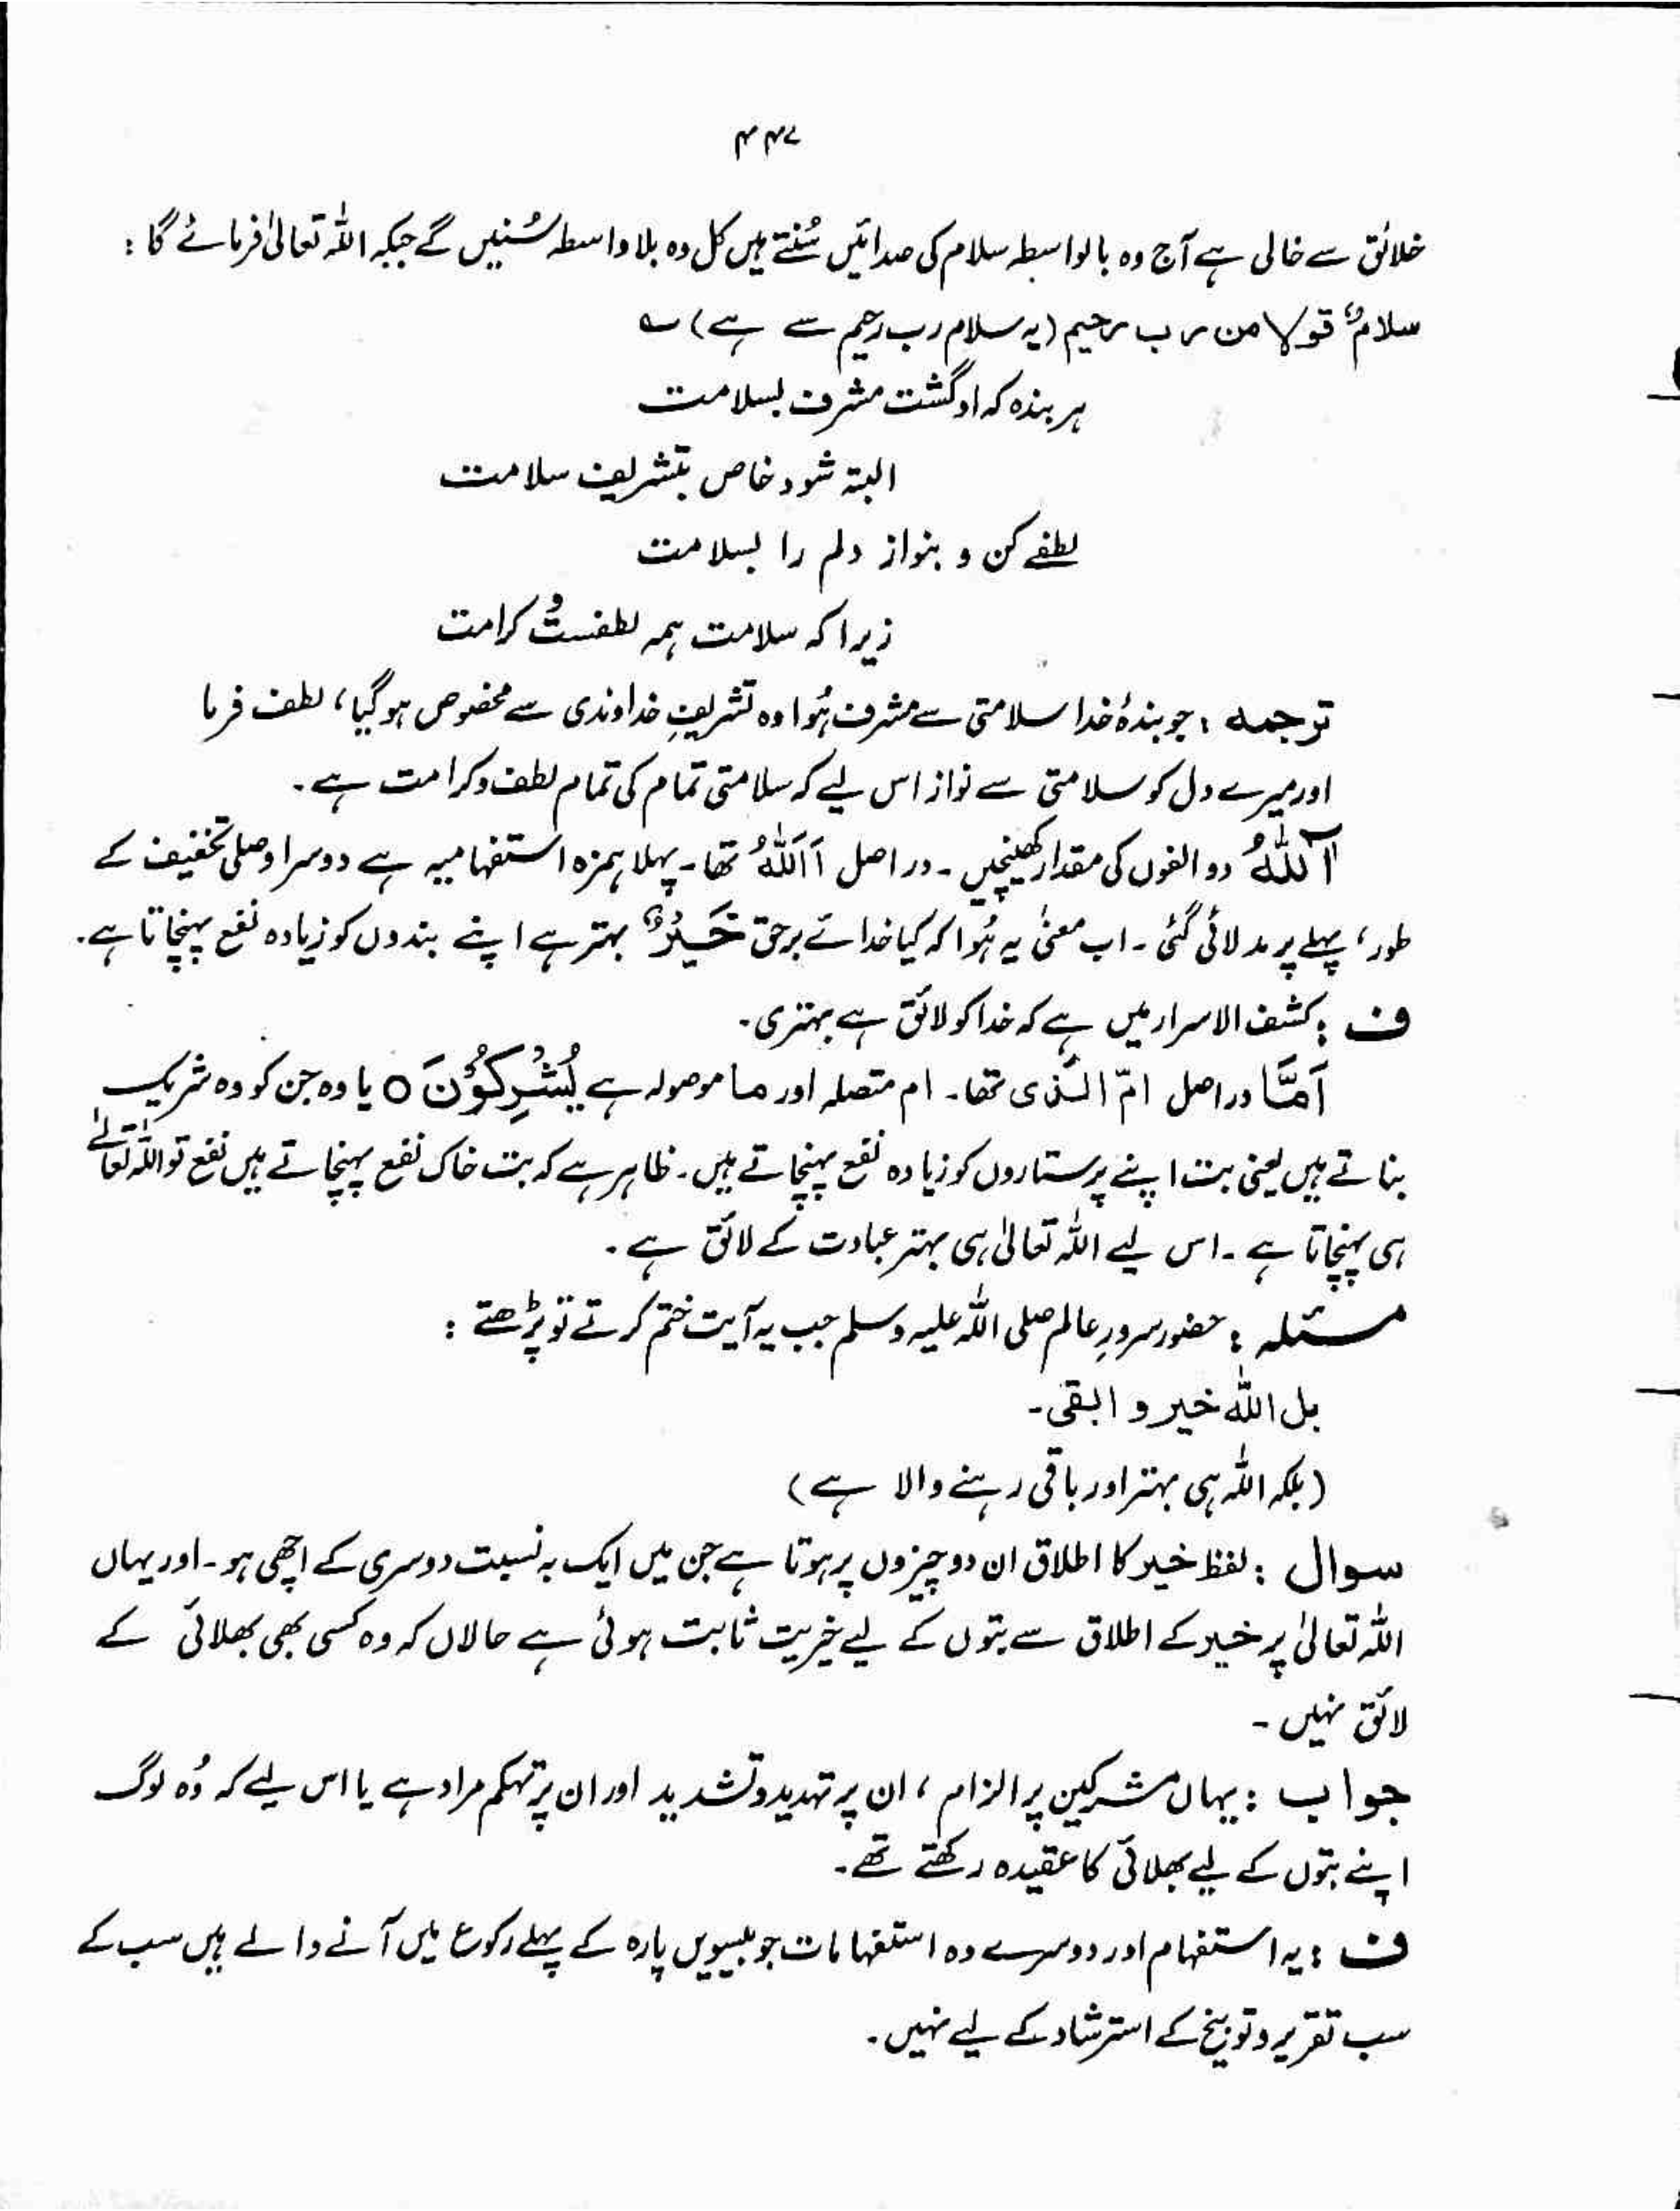 ۴۴۷
خلائق سے خالی ہے آج وہ بالواسطہ سلام کی صدائیں سُنتے ہیں کل وہ بلا واسطہ سُنیں گے جبکہ اللہ تعالیٰ فرمائے گا :
سلامٌ قولا من رب رحیم (یہ سلام رب رحیم سے ہے) ؎
ہر بندہ کہ او گشت مشرف بسلامت
البتہ شود خاص بتشریف سلامت
لطفے کن و بنواز دلم را بسلامت
زیرا کہ سلامت ہمہ لطفست و کرامت
ترجمہ : جو بندۂ خدا سلامتی سے مشرف ہُوا وہ تشریفِ خداوندی سے مخصوص ہوگیا، لطف فرما
اور میرے دل کو سلامتی سے نواز اس لیے کہ سلامتی تمام کی تمام لطف و کرامت ہے ۔
آللّٰہُ دو الفوں کی مقدار کھینچیں ۔ دراصل أَاَللّٰہُ تھا ۔ پہلا ہمزہ استفہامیہ ہے دوسرا وصلی تخفیف کے
طور، پہلے پر مد لائی گئی ۔ اب معنیٰ یہ ہُوا کہ کیا خدائے برحق خَیْرٌ بہتر ہے اپنے بندوں کو زیادہ نفع پہنچاتا ہے ۔
ف : کشف الاسرار میں ہے کہ خدا کو لائق ہے بہتری ۔
اَمَّا دراصل امّ الّذی تھا ۔ ام متصلہ اور ما موصولہ ہے یُشْرِکُوْنَ ○ یا وہ جن کو وہ شریک
بناتے ہیں یعنی بت اپنے پرستاروں کو زیادہ نفع پہنچاتے ہیں ۔ ظاہر ہے کہ بت خاک نفع پہنچاتے ہیں نفع تو اللہ تعالےٰ
ہی پہنچاتا ہے ۔ اس لیے اللہ تعالیٰ ہی بہتر عبادت کے لائق ہے ۔
مسئلہ : حضور سرورِ عالم صلی اللہ علیہ وسلم جب یہ آیت ختم کرتے تو پڑھتے :
بل اللہ خیر و ابقی ۔
(بلکہ اللہ ہی بہتر اور باقی رہنے والا ہے)
سوال : لفظ خیر کا اطلاق ان دو چیزوں پر ہوتا ہے جن میں ایک بہ نسبت دوسری کے اچھی ہو ۔ اور یہاں
اللہ تعالیٰ پر خیر کے اطلاق سے بتوں کے لیے خیریت ثابت ہوئی ہے حالاں کہ وہ کسی بھی بھلائی کے
لائق نہیں ۔
جواب : یہاں مشرکین پر الزام ، ان پر تہدید و تشدید اور ان پر تہکم مراد ہے یا اس لیے کہ وُہ لوگ
اپنے بتوں کے لیے بھلائی کا عقیدہ رکھتے تھے ۔
ف : یہ استفہام اور دوسرے وہ استفہامات جو بیسویں پارہ کے پہلے رکوع میں آنے والے ہیں سب کے
سب تقریر و توبیخ کے استرشاد کے لیے نہیں ۔